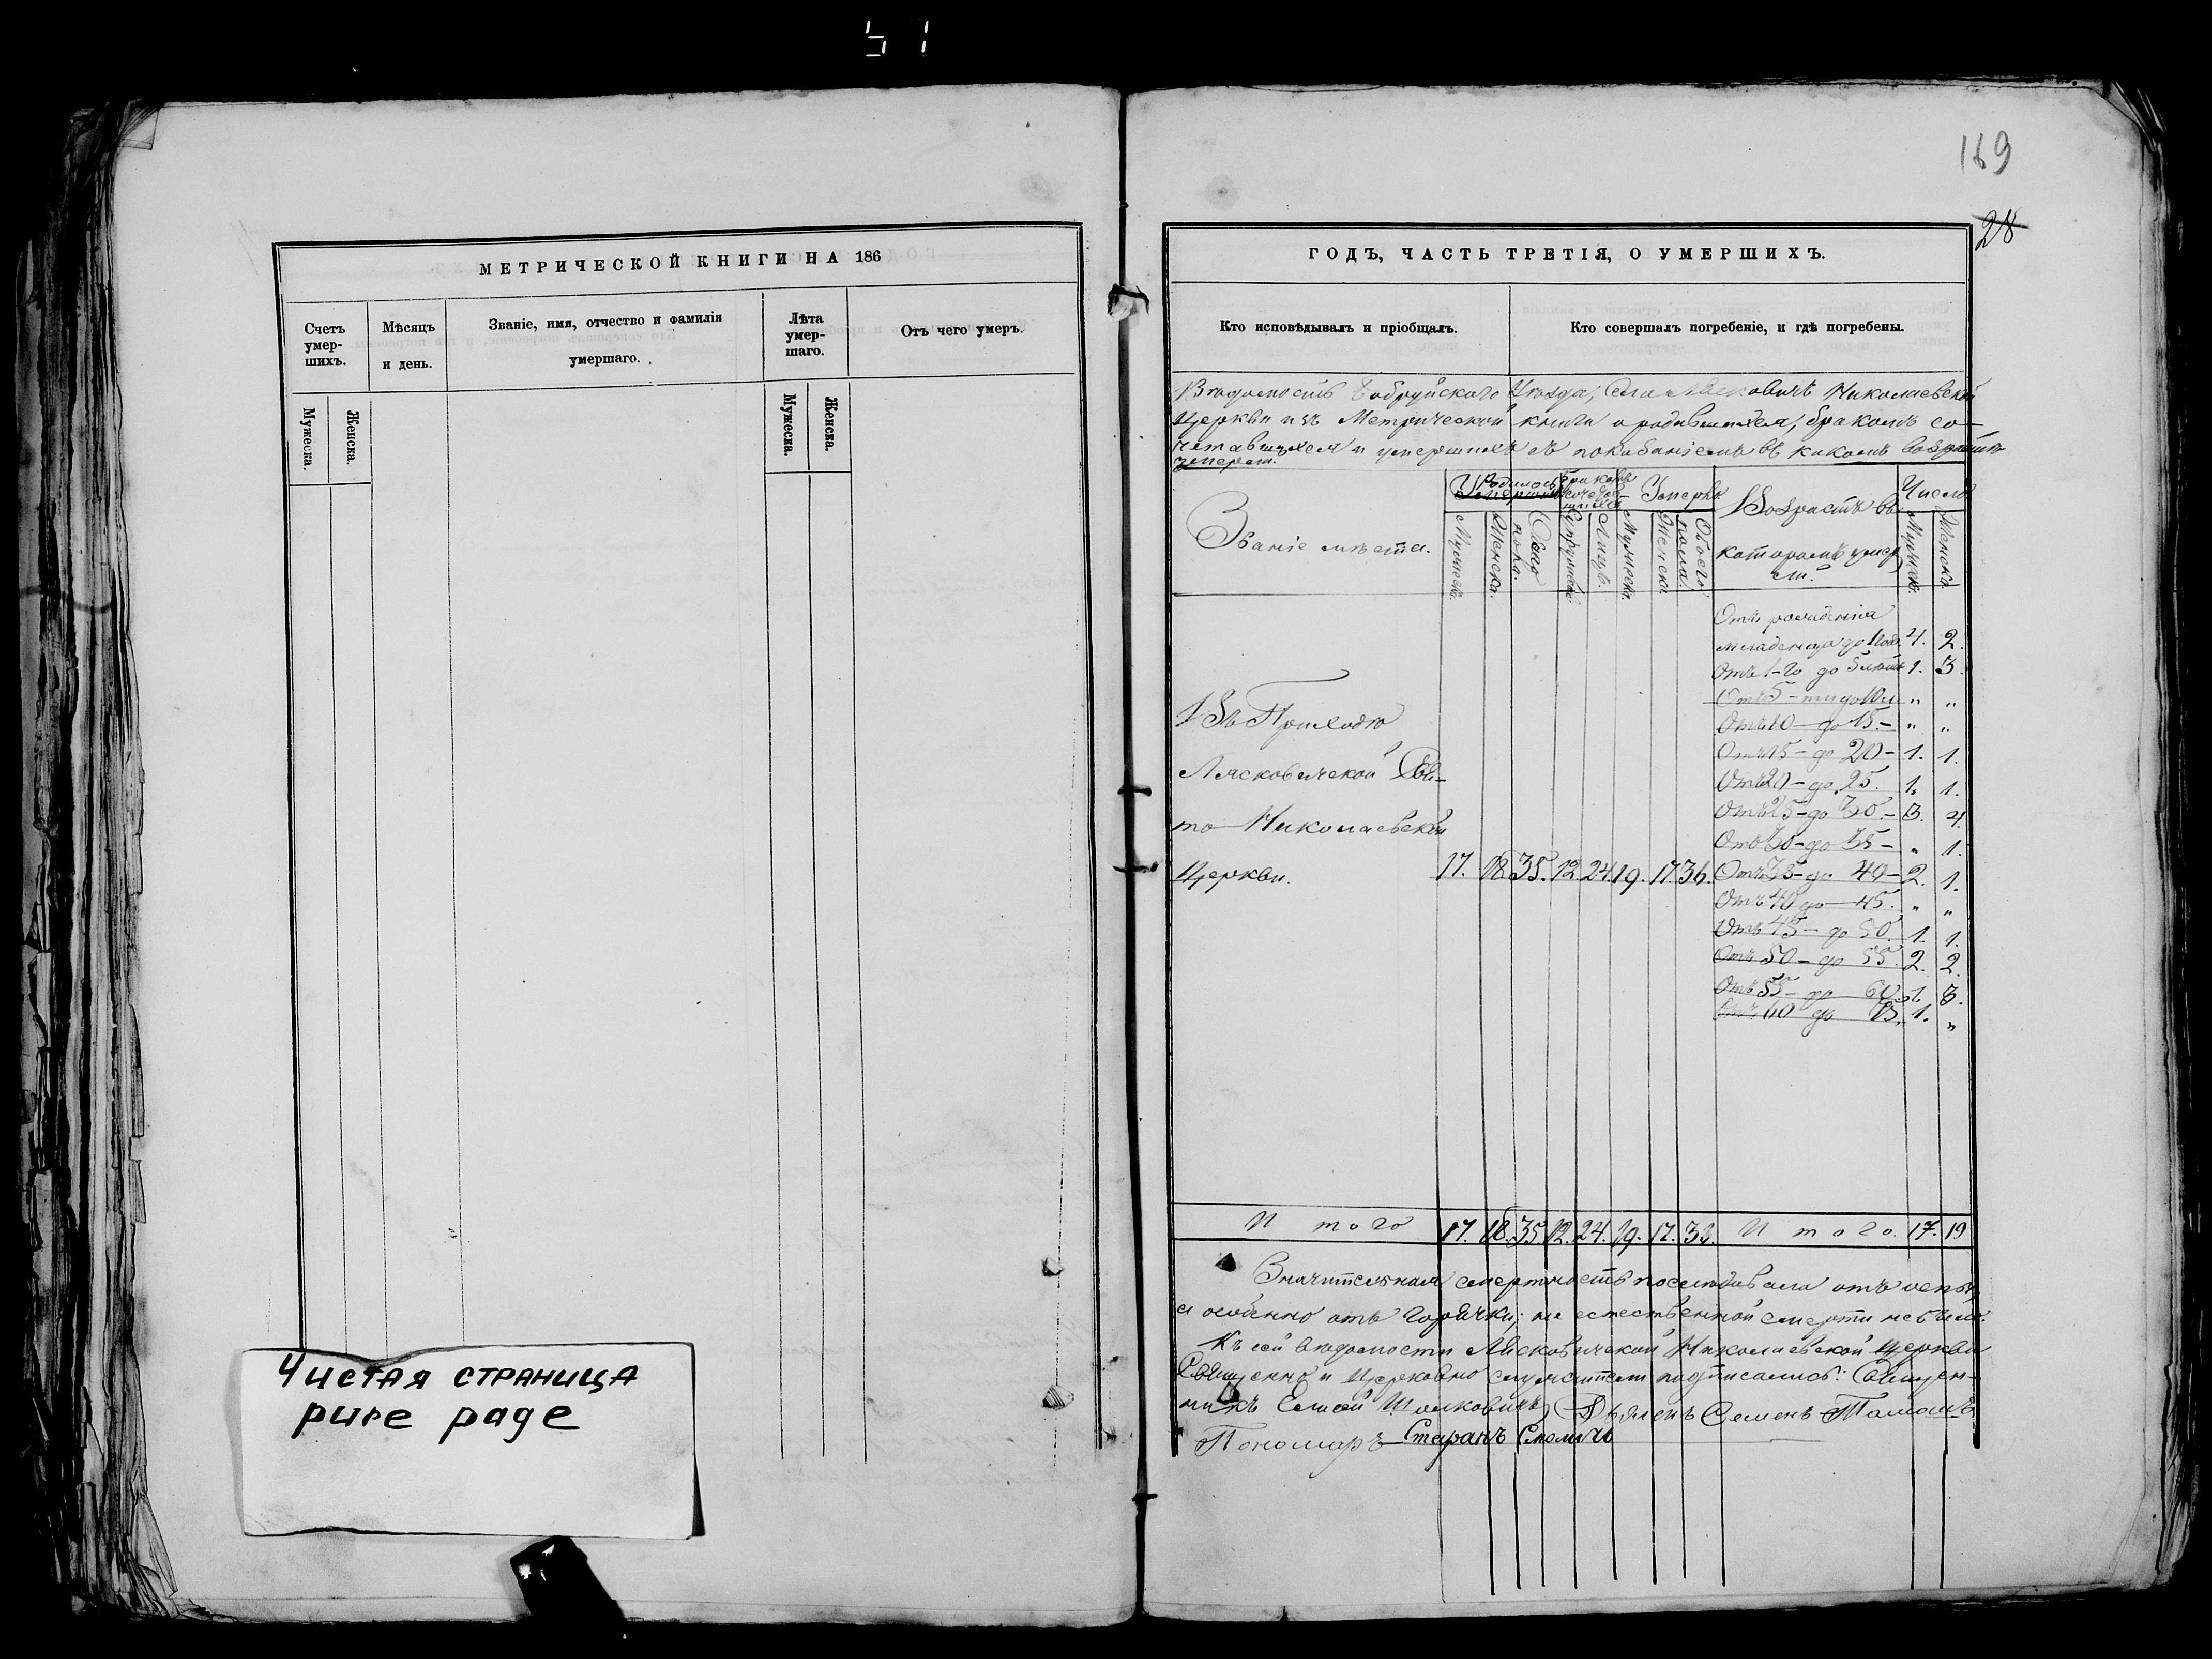 169
28
МЕТРИЧЕСКОЙ КНИГИ НА 186
Счетъ умер-шихъ.
Мѣсяцъ и день.
Званіе, имя, отчество и фамилія умершаго.
Лѣта умер-шаго.
Отъ чего умеръ.
Мужеска.
Женска.
Мужеска.
Женска.
Чистая страница
pure page
ГОДЪ, ЧАСТЬ ТРЕТІЯ, О УМЕРШИХЪ.
Кто исповѣдывалъ и пріобщалъ.
Кто совершалъ погребеніе, и гдѣ погребены.
Вѣдомость Бобруйскаго Уѣзда, Николаевской
Церкви изъ Метрической книги о родившихся, бракомъ со-
четавшихся и умершихъ съ показаніемъ въ какомъ возрастѣ
умерли.
Званіе мѣста.
Родилось
Умерло
Возрастъ въ
которомъ умер
ли.
Число
Мужеска.
Женска.
Обоего пола.
Супружеств.
Лицъ.
Мужеска.
Женска.
Обоего пола.
Мужеска.
Женска.
Отъ рожденія
младенца до 1 года 4. 2.
Отъ 1-го до 5 лѣтъ 1. 3.
Отъ 5-ти до 10 „ „
Отъ 10 - до 15. - „ „
Отъ 15 - до 20 - 1. 1.
Отъ 20 - до 25. 1. 1.
Отъ 25 - до 30 - 3. 4.
Отъ 30 - до 35 - „ 1.
Въ Приходѣ
Лясковичской Свя-
то-Николаевской
Церкви. 17. 18. 35. 12. 24. 19. 17. 36. Отъ 35 - до 40 - 2. 1.
Отъ 40 до 45. „ „
Отъ 45 - до 50 1. 1.
Отъ 50 - до 55. 2. 2.
Отъ 55 - до 60 1. 3.
Отъ 60 до 1. „
Итого 17. 18. 35. 12. 24. 19. 17. 36. Итого. 17. 19
Значительная смертность послѣдовала отъ оспы,
а особенно отъ горячки; не естественной смерти не было.
Къ сей вѣдомости Лясковичской Николаевской Церкви
Священно и Церковно служители подписались: Священ-
никъ Елисей Дьячекъ Семенъ
Пономарь Стефанъ Смоличъ